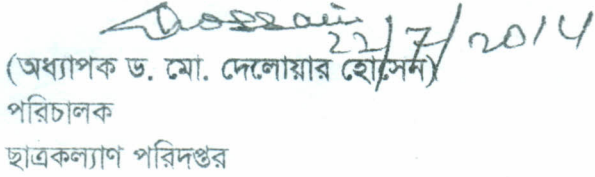 Hossain
22/7/2014
(অধ্যাপক ড. মো. দেলোয়ার হোসেন)
পরিচালক
ছাত্রকল্যাণ পরিদপ্তর